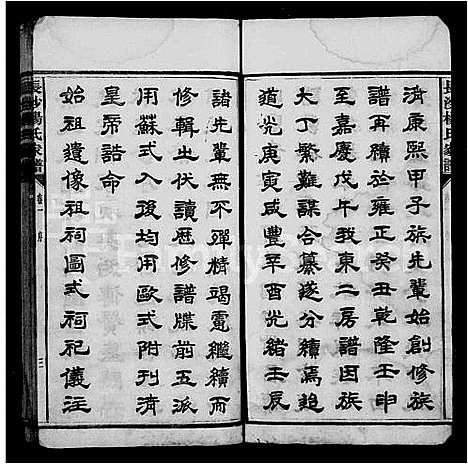 清康熙甲子族先輩始創修族
譜再續於雍正癸丑乾隆壬申
至嘉慶戊午我東二房譜因族
大丁繁難謀合纂遂分續焉迨
道光庚寅咸豐辛酉光緒壬辰
諸先輩無不殫精竭慮繼續而
修輯出伏讀歷修譜牒前五派
用蘇式入後均用歐式附刊清
皇帝誥命
始祖遺像祖祠圖式祠祀儀注
長沙楊氏家譜
卷一 序
三